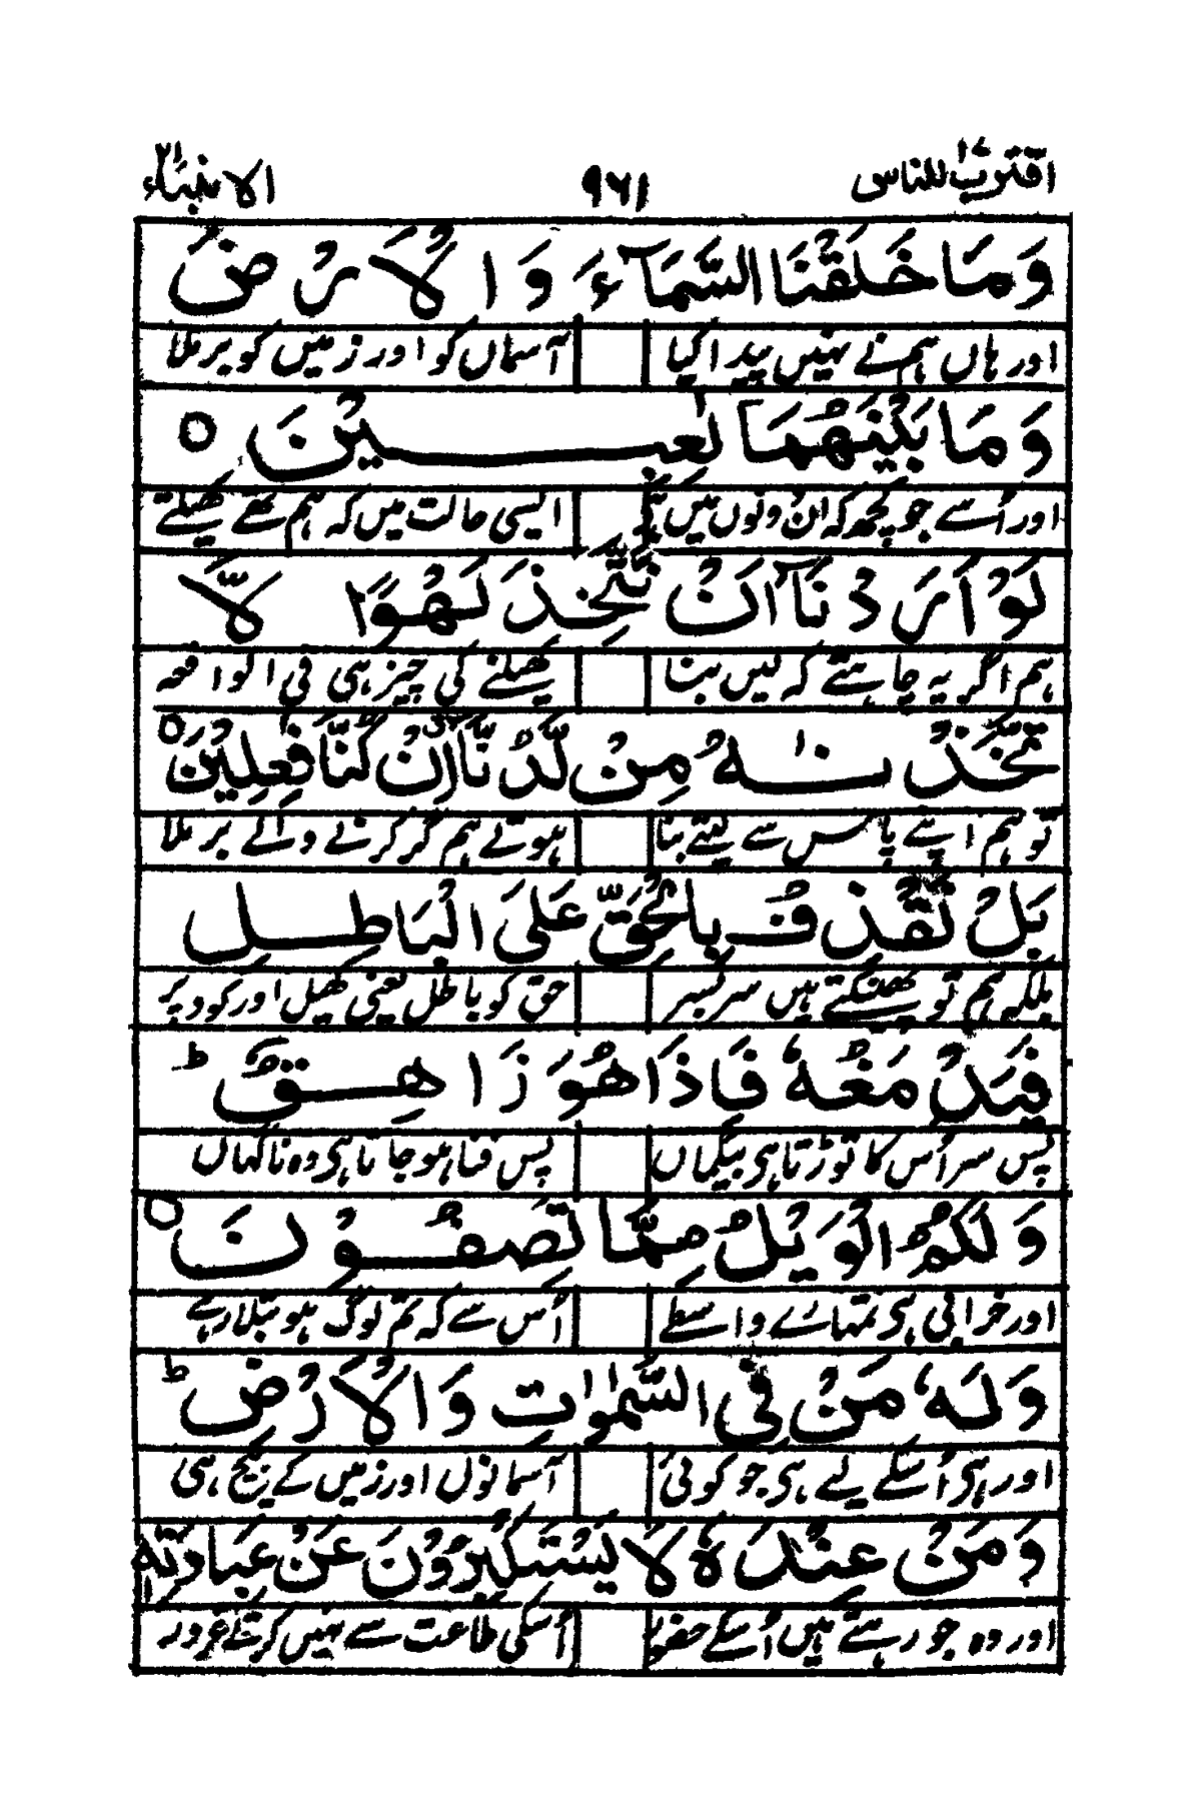 اقترب للناس ١٧ ٩٦١ الانبیاء ٢١
وَمَا خَلَقْنَا السَّمَآءَ وَالْاَرْضَ
اور ہاں ہم نے نہیں پیدا کیا آسماں کو اور زمیں کو برملا
وَمَا بَيْنَهُمَا لٰعِبِيْنَ ○
اور اُسے جو کچھ کہ ان دونوں میں ہے ایسی حالت میں کہ ہم تھے کھیلتے
لَوْ اَرَدْنَآ اَنْ نَّتَّخِذَ لَهْوًا لَّا
ہم اگر یہ چاہتے کہ لیں بنا کھیلنے کی چیز ہی فی الواقعہ
تَّخَذْنٰهُ مِنْ لَّدُنَّآ اِنْ كُنَّا فٰعِلِيْنَ ○
تو ہم اسے پاس سے لیتے بنا ہوتے ہم گر کرنے والے برملا
بَلْ نَقْذِفُ بِالْحَقِّ عَلَى الْبَاطِلِ
بلکہ ہم تو پھینکتے ہیں سربسر حق کو باطل یعنی کھیل اور کود پر
فَيَدْمَغُهٗ فَاِذَا هُوَ زَاهِقٌ ؕ
پس سر اُس کا توڑتا ہی بیگماں پس فنا ہو جاتا ہی وہ ناگہاں
وَلَكُمُ الْوَيْلُ مِمَّا تَصِفُوْنَ ○
اور خرابی ہی تمہارے واسطے اُس سے کہ تم لوگ ہو بتلا رہے
وَلَهٗ مَنْ فِى السَّمٰوٰتِ وَالْاَرْضِ ؕ
اور ہی اُسکے لیے ہی جو کوئی آسمانوں اور زمیں کے بیچ ہی
وَمَنْ عِنْدَهٗ لَا يَسْتَكْبِرُوْنَ عَنْ عِبَادَتِهٖ
اور وہ جو رہتے ہیں اُسکے حضور اُسکی طاعت سے نہیں کرتے غرور